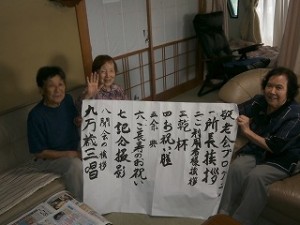 敬老会プログラム
一 所長挨拶
二 ご利用者様挨拶
三 乾杯
四 お祝い膳
五 余興
六 ご長寿のお祝い
七 記念撮影
八 閉会の挨拶
九 万歳三唱